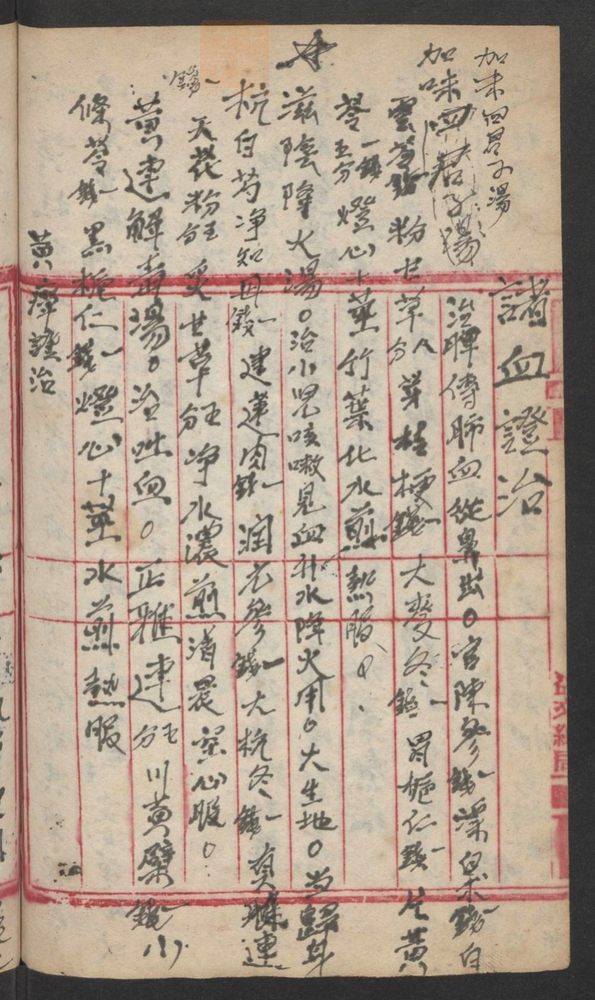 諸血證治
加味四君子湯
加味四君子湯
治脾傳肺血從鼻出。官陳參錢一 白
雲苓錢一粉甘草八分 芽桔梗錢一大麥冬錢一黑梔仁錢一片黃
芩一錢五分燈心十莖竹葉七水煎熱服。
滋陰降火湯。治小兒咳嗽見血升水降火用。大生地。当歸身
杭白芍净知母錢一建蓮肉錢一潤元參錢一大杭冬錢一真雅連
錢一天花粉五分炙甘草五分净水濃煎清晨空心服。
黃連解毒湯。治吐血。正雅連五分川黃檗錢一小
條芩錢一黑梔仁錢一燈心十莖水煎熱服
黃 證治